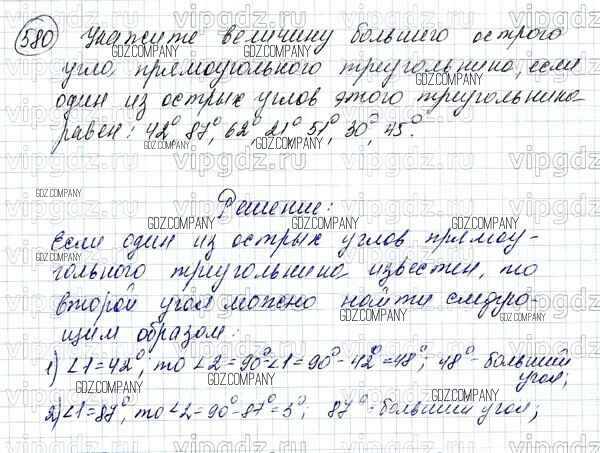 580 Укажите величину большего острого
угла прямоугольного треугольника, если
один из острых углов этого треугольника
равен: 42°, 87°, 62°, 21°, 51°, 30°, 45°.
Решение:
Если один из острых углов прямоу-
гольного треугольника известен, то
второй угол можно найти следую-
щим образом:
1) ∠1=42°, то ∠2=90°-∠1=90°-42°=48°; 48°- больший
угол;
2) ∠1=87°, то ∠2=90°-87°=3°; 87°- больший угол;